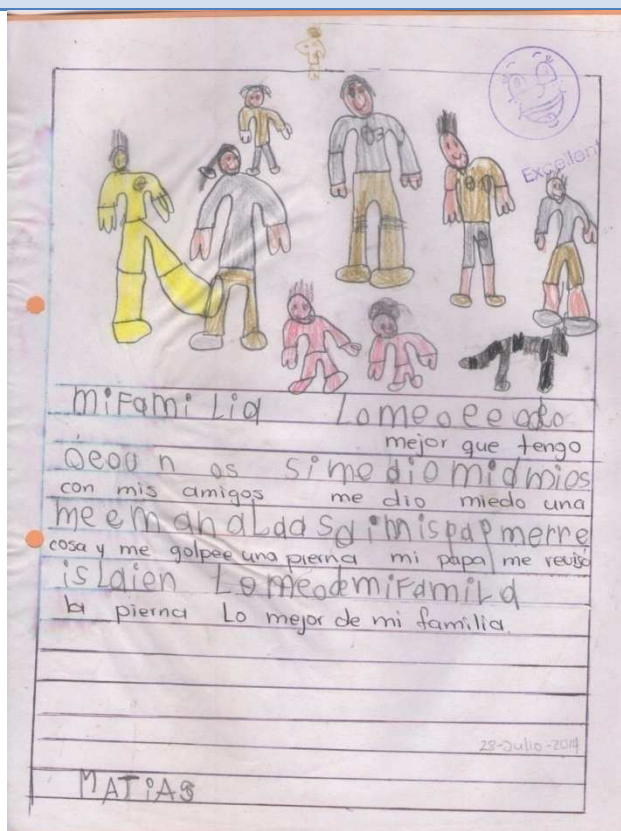 Excellent
miFamiLia Lomeoeeodo
mejor que tengo
oeoun os simediomidmios
con mis amigos me dio miedo una
meemanaLdasdimispapmerre
cosa y me golpee una pierna mi papa me revisó
isLdien LomeodemiFamiLd
la pierna Lo mejor de mi familia.
28-Julio-2014
MATiAS